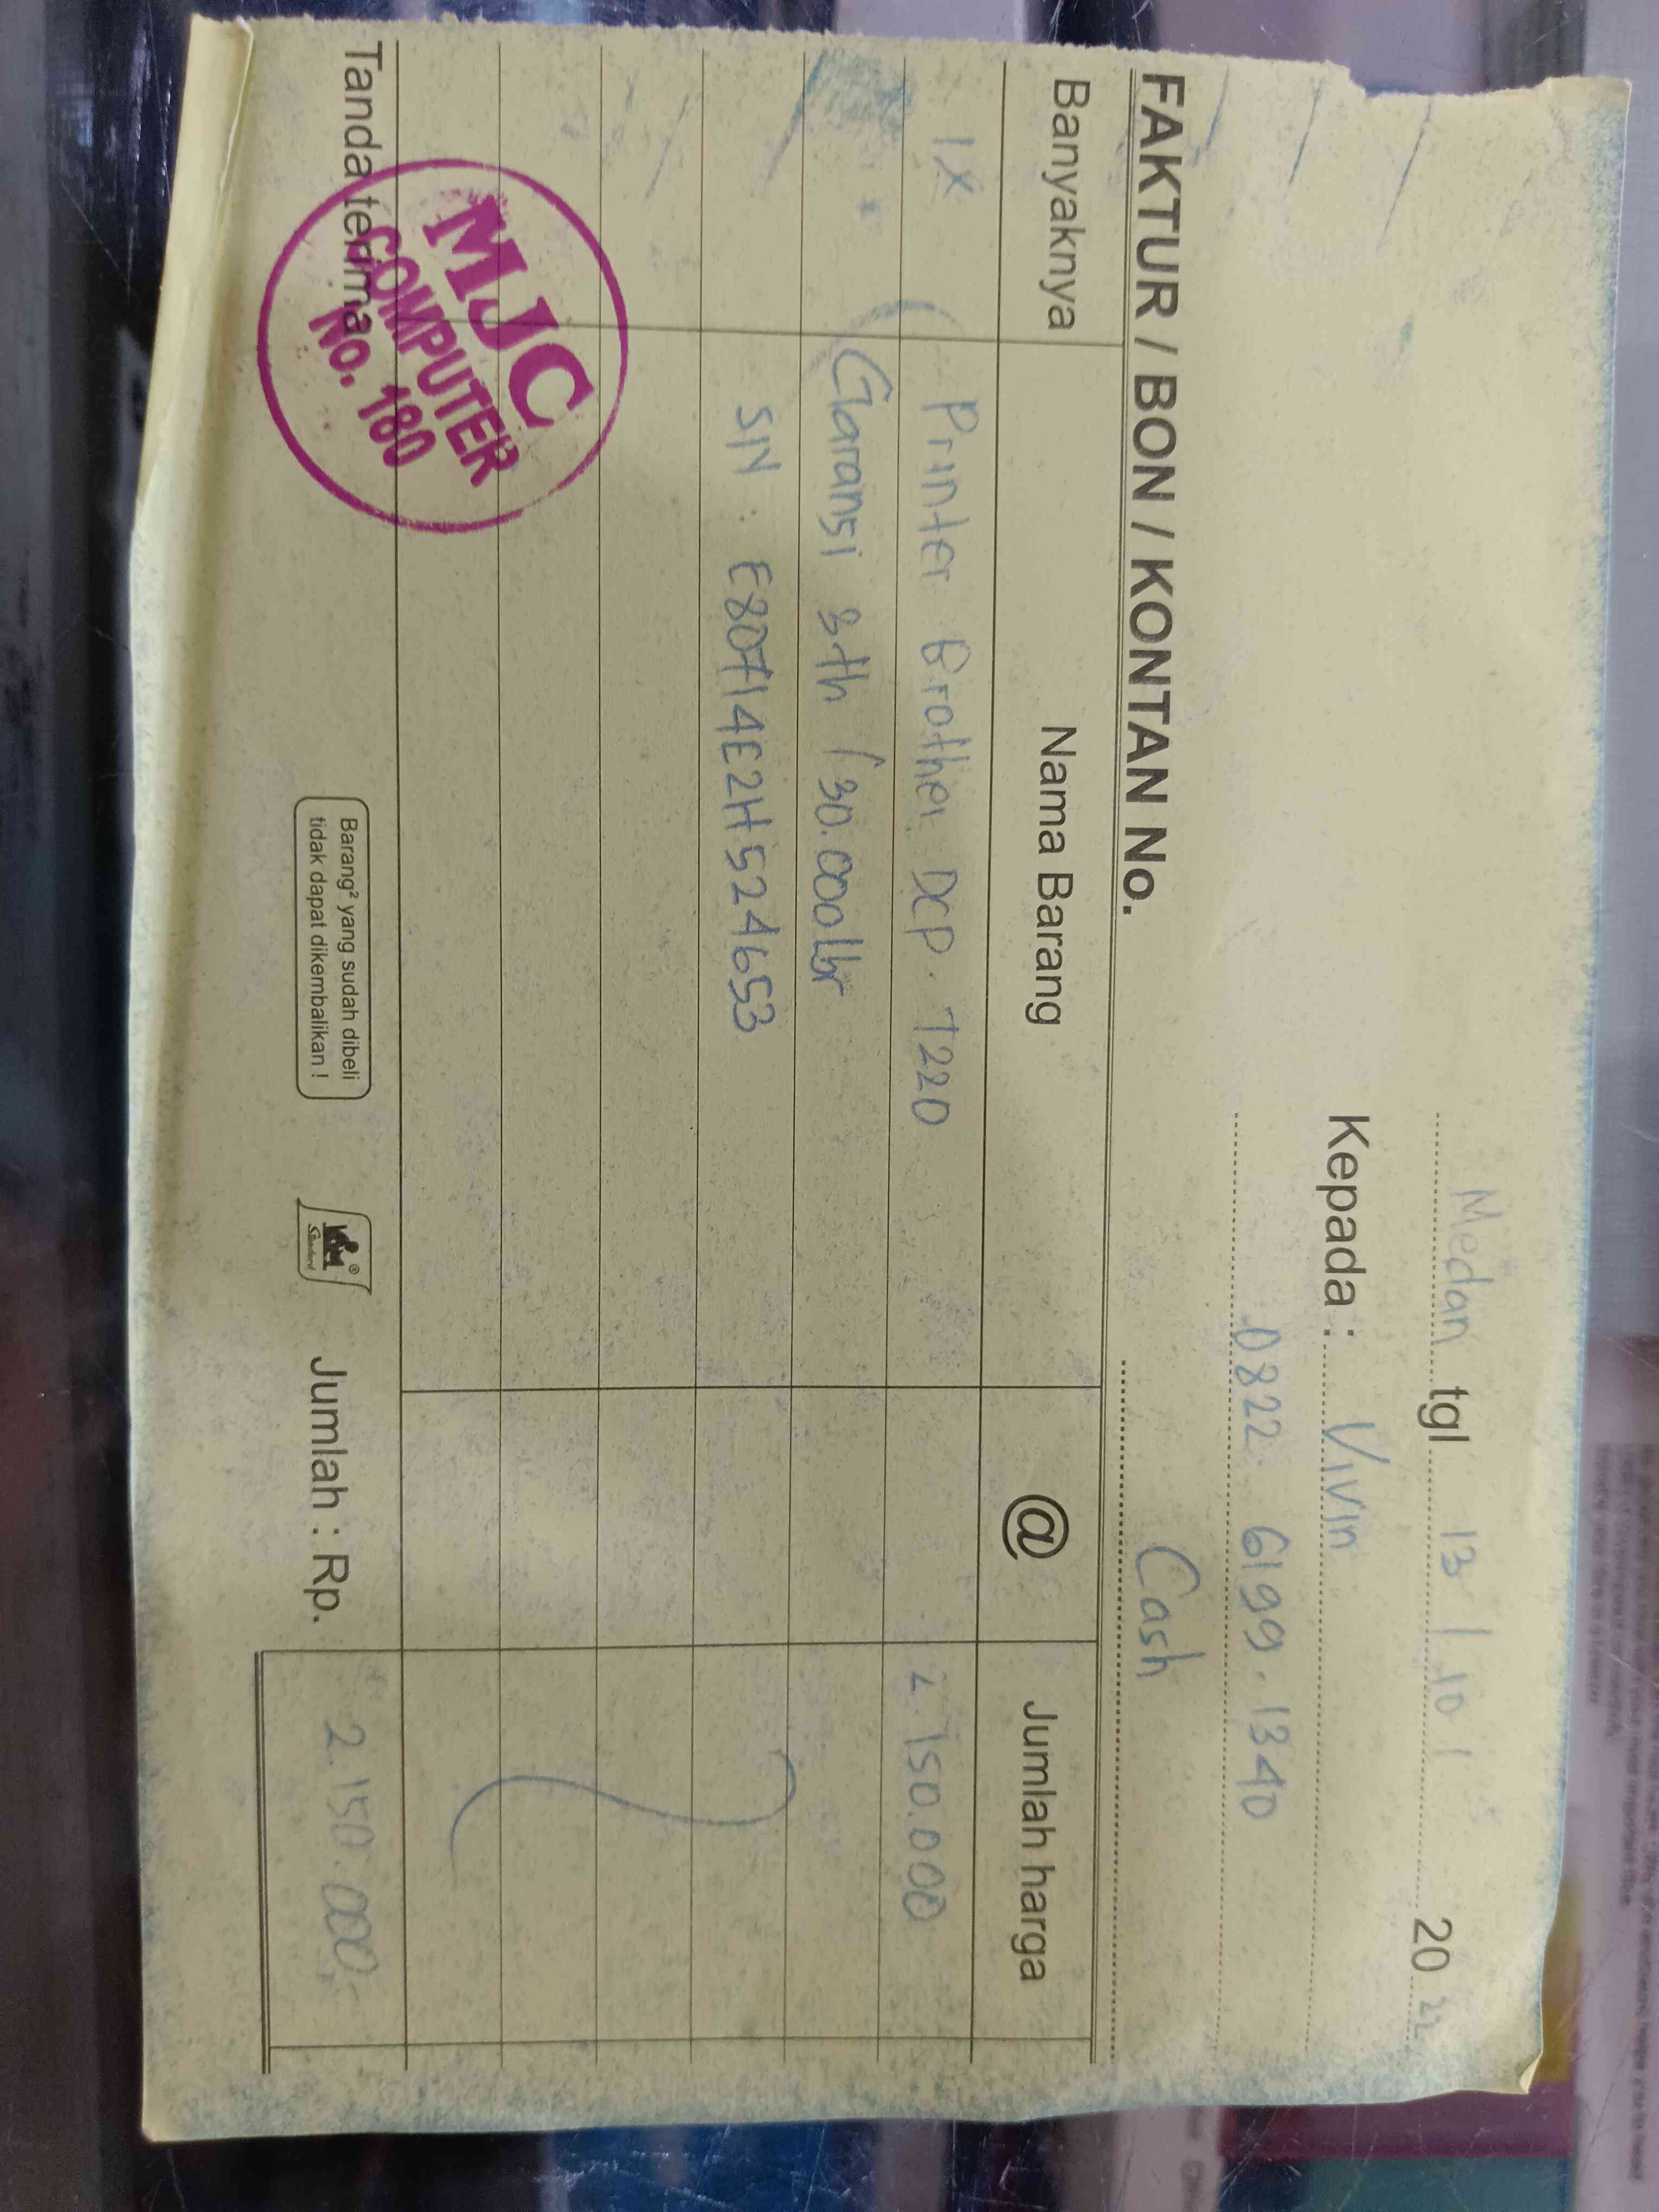 Medan tgl 13 / 10 / 20 22
Kepada : Vivin
0822 6199 . 1340
FAKTUR / BON / KONTAN No. Cash
Banyaknya Nama Barang @ Jumlah harga
1x Printer Brother DCP. T220 2.150.000
Garansi 3th / 30.000lbr
S/N : E80714E2H524653
Tanda terima
MJC
COMPUTER
No. 180
Barang² yang sudah dibeli
tidak dapat dikembalikan !
Jumlah : Rp. 2.150.000